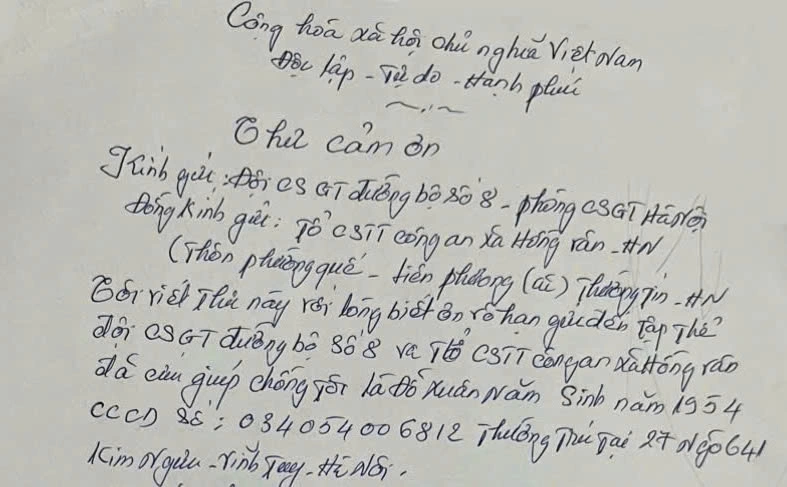 Cộng hoá xã hội chủ nghĩa Việt Nam
Độc lập - Tự do - Hạnh phúc
Thư cảm ơn
Kính gửi: Đội CSGT đường bộ số 8 - phòng CSGT Hà Nội
Đồng Kính gửi: Tổ CSTT công an xã Hồng vân - HN
(Thôn phương quế - tiền phong (cũ) Thường Tín - HN
Tôi viết Thư này với lòng biết ơn vô hạn gửi đến Tập Thể
đội CSGT đường bộ số 8 và Tổ CSTT công an xã Hồng vân
đã cứu giúp chồng Tôi là Đỗ Xuân Năm Sinh năm 1954
CCCD Số: 034054006812 Thường Trú Tại 27 Ngõ 641
Kim Ngưu - Vĩnh Tuy - Hà Nội.